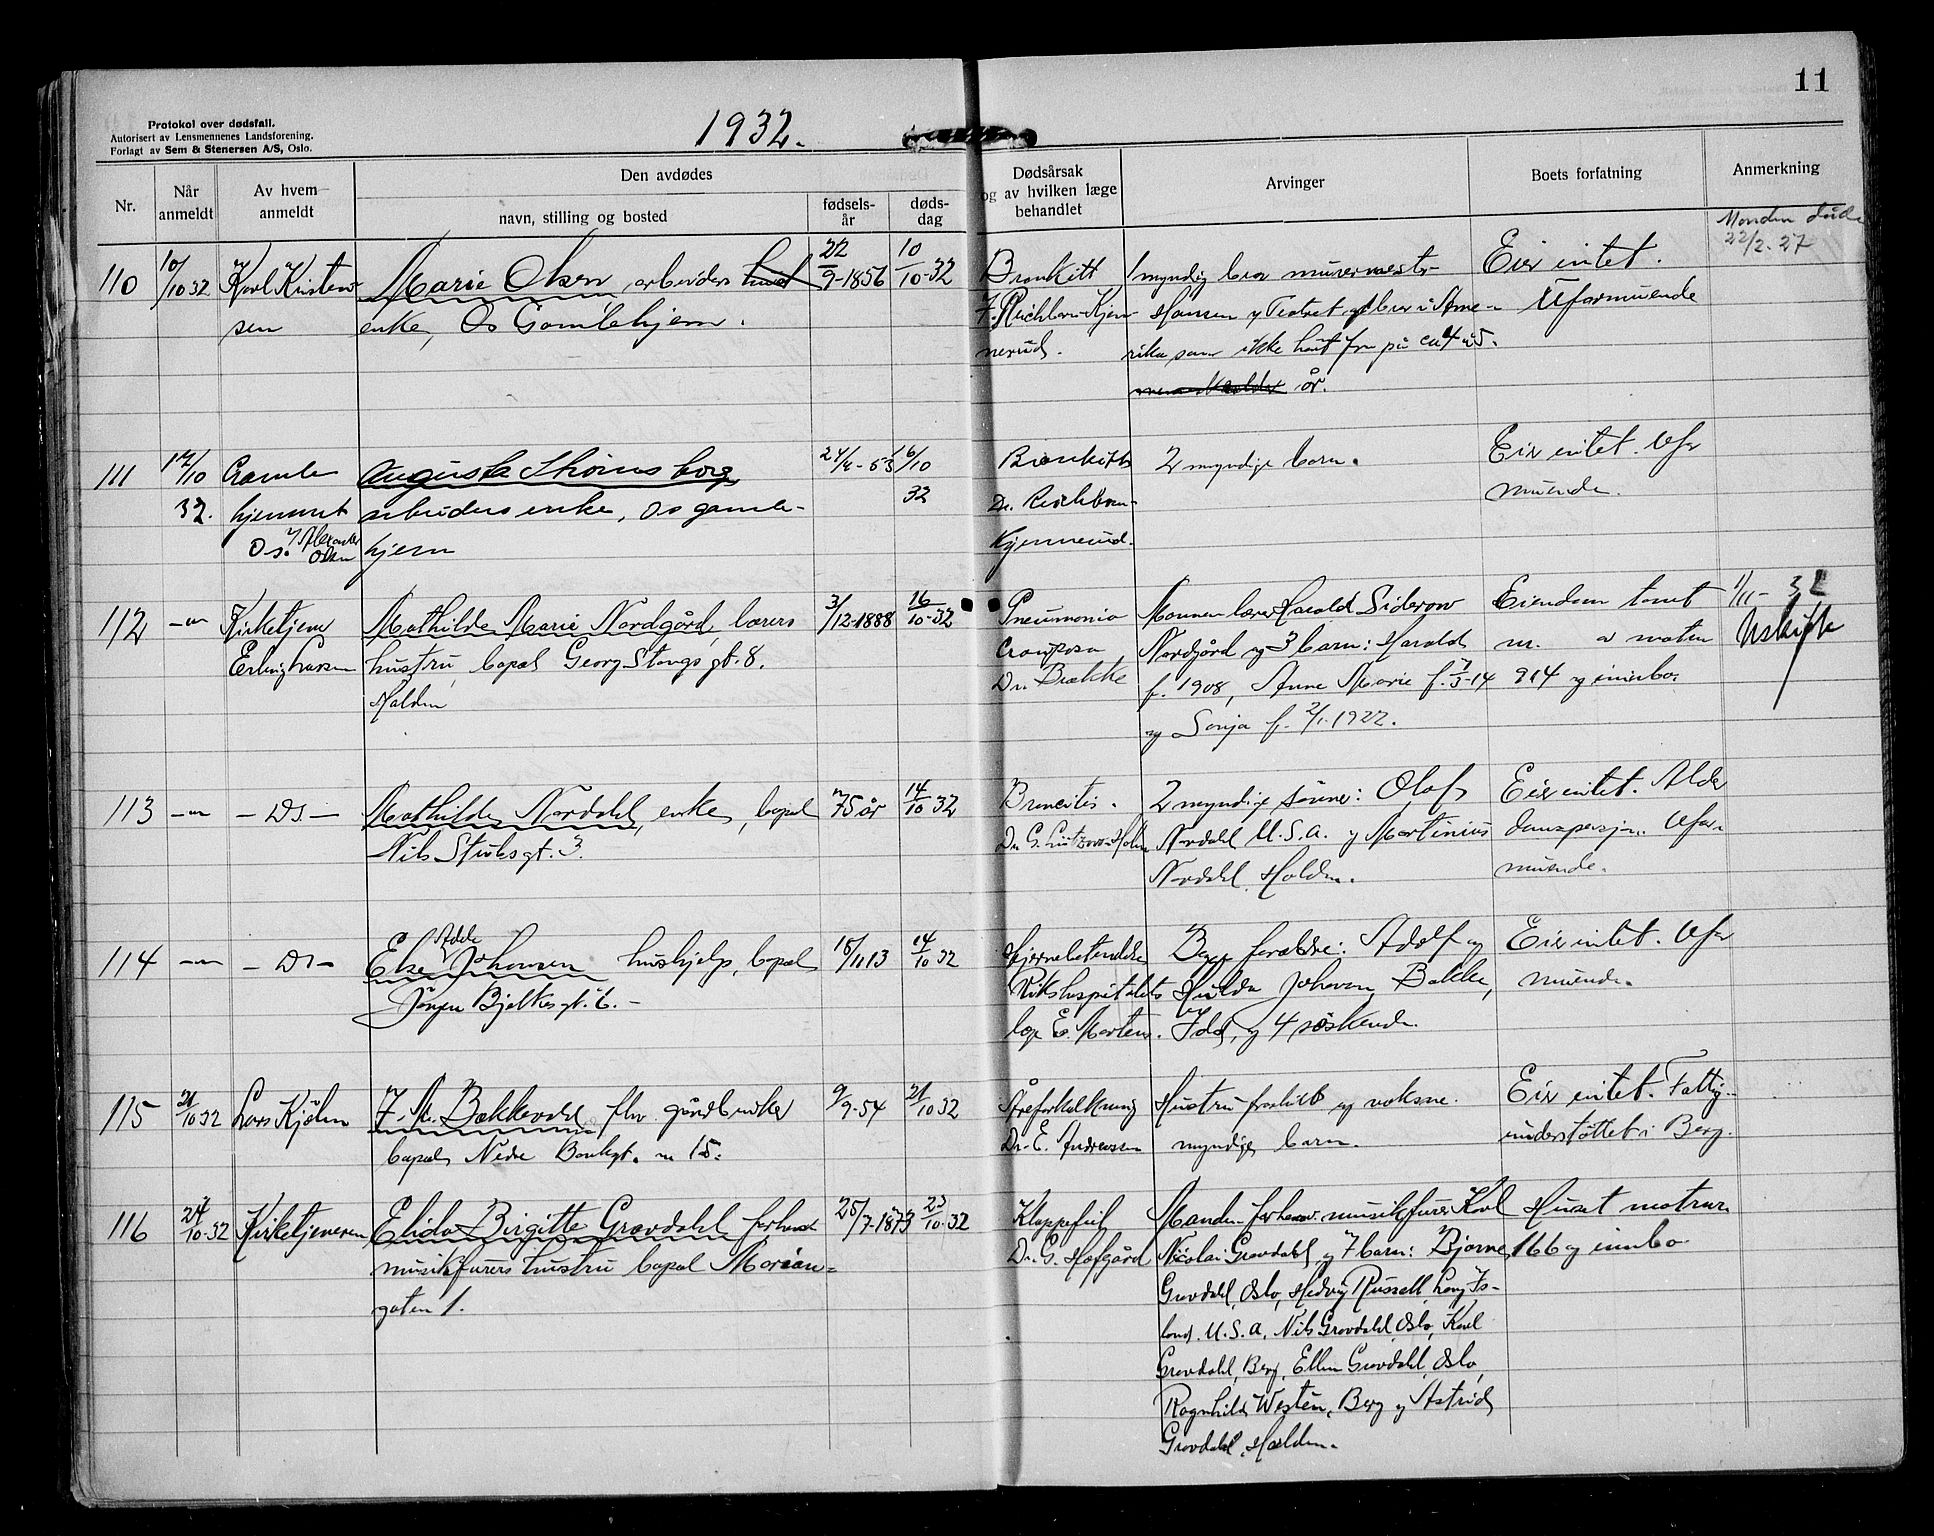 11
Protokol over dødsfall.
Autorisert av Lensmennenes Landsforening.
Forlagt av Sem & Stenersen A/S, Oslo.
1932.
Nr.
Når anmeldt
Av hvem anmeldt
Den avdødes
navn, stilling og bosted
fødsels-år
døds-dag
Dødsårsak og av hvilken læge behandlet
Arvinger
Boets forfatning
Anmerkning
110
10/10 32
Karl Kristen
sen
Marie Olsen arbeiders
enke, Os Gamlehjem.
22/9-1856
10/10-32
Bronkitt
nerud.
1 myndig bror murermester
Hansen
rika som ikke hørt fra på ca 4 a 5
år.
Eier intet.
Uformuende
Manden døde
22/2-27
111
17/10
32.
Gamle
hjemmet
Os. v/ Alexander
Olsen
Augusta Thornsborg
arbeiders enke, Os gamle-
hjem
16/10
32
Bronkitt
Dr. Reichborn-
Kjennerud.
2 myndige barn.
Eier intet. Ufor
muende.
112
Kirketjener
Erling Larsen
Mathilde Marie Nordgård, lærers
hustru, bopæl Georg Stangs gt. 8.
Halden
3/12-1888
16/10-32
Pneumonia
Crouposa
Dr. Brække
Mannen lærer Harald Siderow
Nordgård og 3 barn: Harald
f. 1908, Anne Marie f. 7/3-14
og Sonja f. 2/1.1922.
Eiendom tomt
m. av maten
914 og innbo.
1/11-32
Uskifte
113
— Ds —
Mathilde Nordahl, enke, bopæl
Nils Stubsgt. 3.
75 år
14/10 32
Broncitis.
Dr. G. Lützow-Holm
2 myndige sønner: Olaf
Nordahl U.S.A. og Martinius
Nordahl, Halden.
Eier intet. Alder
domspensjon. Ufor-
muende.
114
— Ds —
Else Adele Johansen hushjelp, bopæl
Jørgen Bjelkesgt. 6. -
15/11 13
14/10 32
Hjernebetendelse
Rikshospitalets
læge E. Martens.
Begge foreldre: Adolf og
Hulda Johansen, Bakke,
Idd, og 4 søskende.
Eier intet. Ufor
muende.
115
21/10 32
Lars Kjølen
F. M. Bækkevold fhv. gårdbruker
bopæl, Nedre Bankgt. nr 15.
9/9-54
21/10 32
Åreforkalkning
Dr. E. Andreassen
Hustru fraskilt og voksne
myndige barn.
Eier intet. Fattig-
understøttet i Berg.
116
24/10-32
Kirketjeneren
Elida Birgitte Grovdahl forhenv
musikfurers hustru bopæl Marcus-
gaten 1.
25/7-1873
23/10-32
Klappefeil
Dr. G. Hofgård
Manden forhenv. musikfurer Karl
Nicolai Grovdahl, og 7 barn: Bjarne
Grovdahl, Oslo, Hedvig Russell, Long Is-
land. U.S.A, Nils Grovdahl, Oslo, Karl
Grovdahl, Berg, Ellen Grovdahl, Oslo,
Ragnhild Westen, Berg og Astrid
Grovdahl, Halden.
Huset matr.nr.
166 og innbo